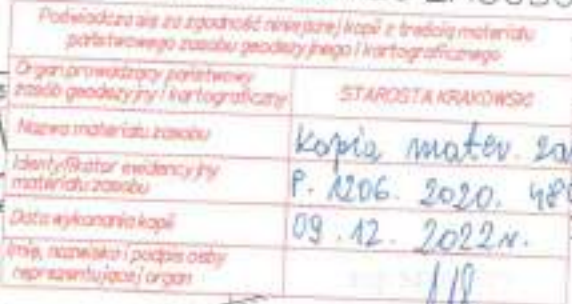 Poświadcza się za zgodność niniejszej kopii z treścią materiału
państwowego zasobu geodezyjnego i kartograficznego
Organ prowadzący państwowy
zasób geodezyjny i kartograficzny
STAROSTA KRAKOWSKI
Nazwa materiału zasobu
Kopia mater. za
Identyfikator ewidencyjny
materiału zasobu
P. 1206. 2020. 48
Data wykonania kopii
09. 12. 2022 r.
Imię, nazwisko i podpis osoby
reprezentującej organ